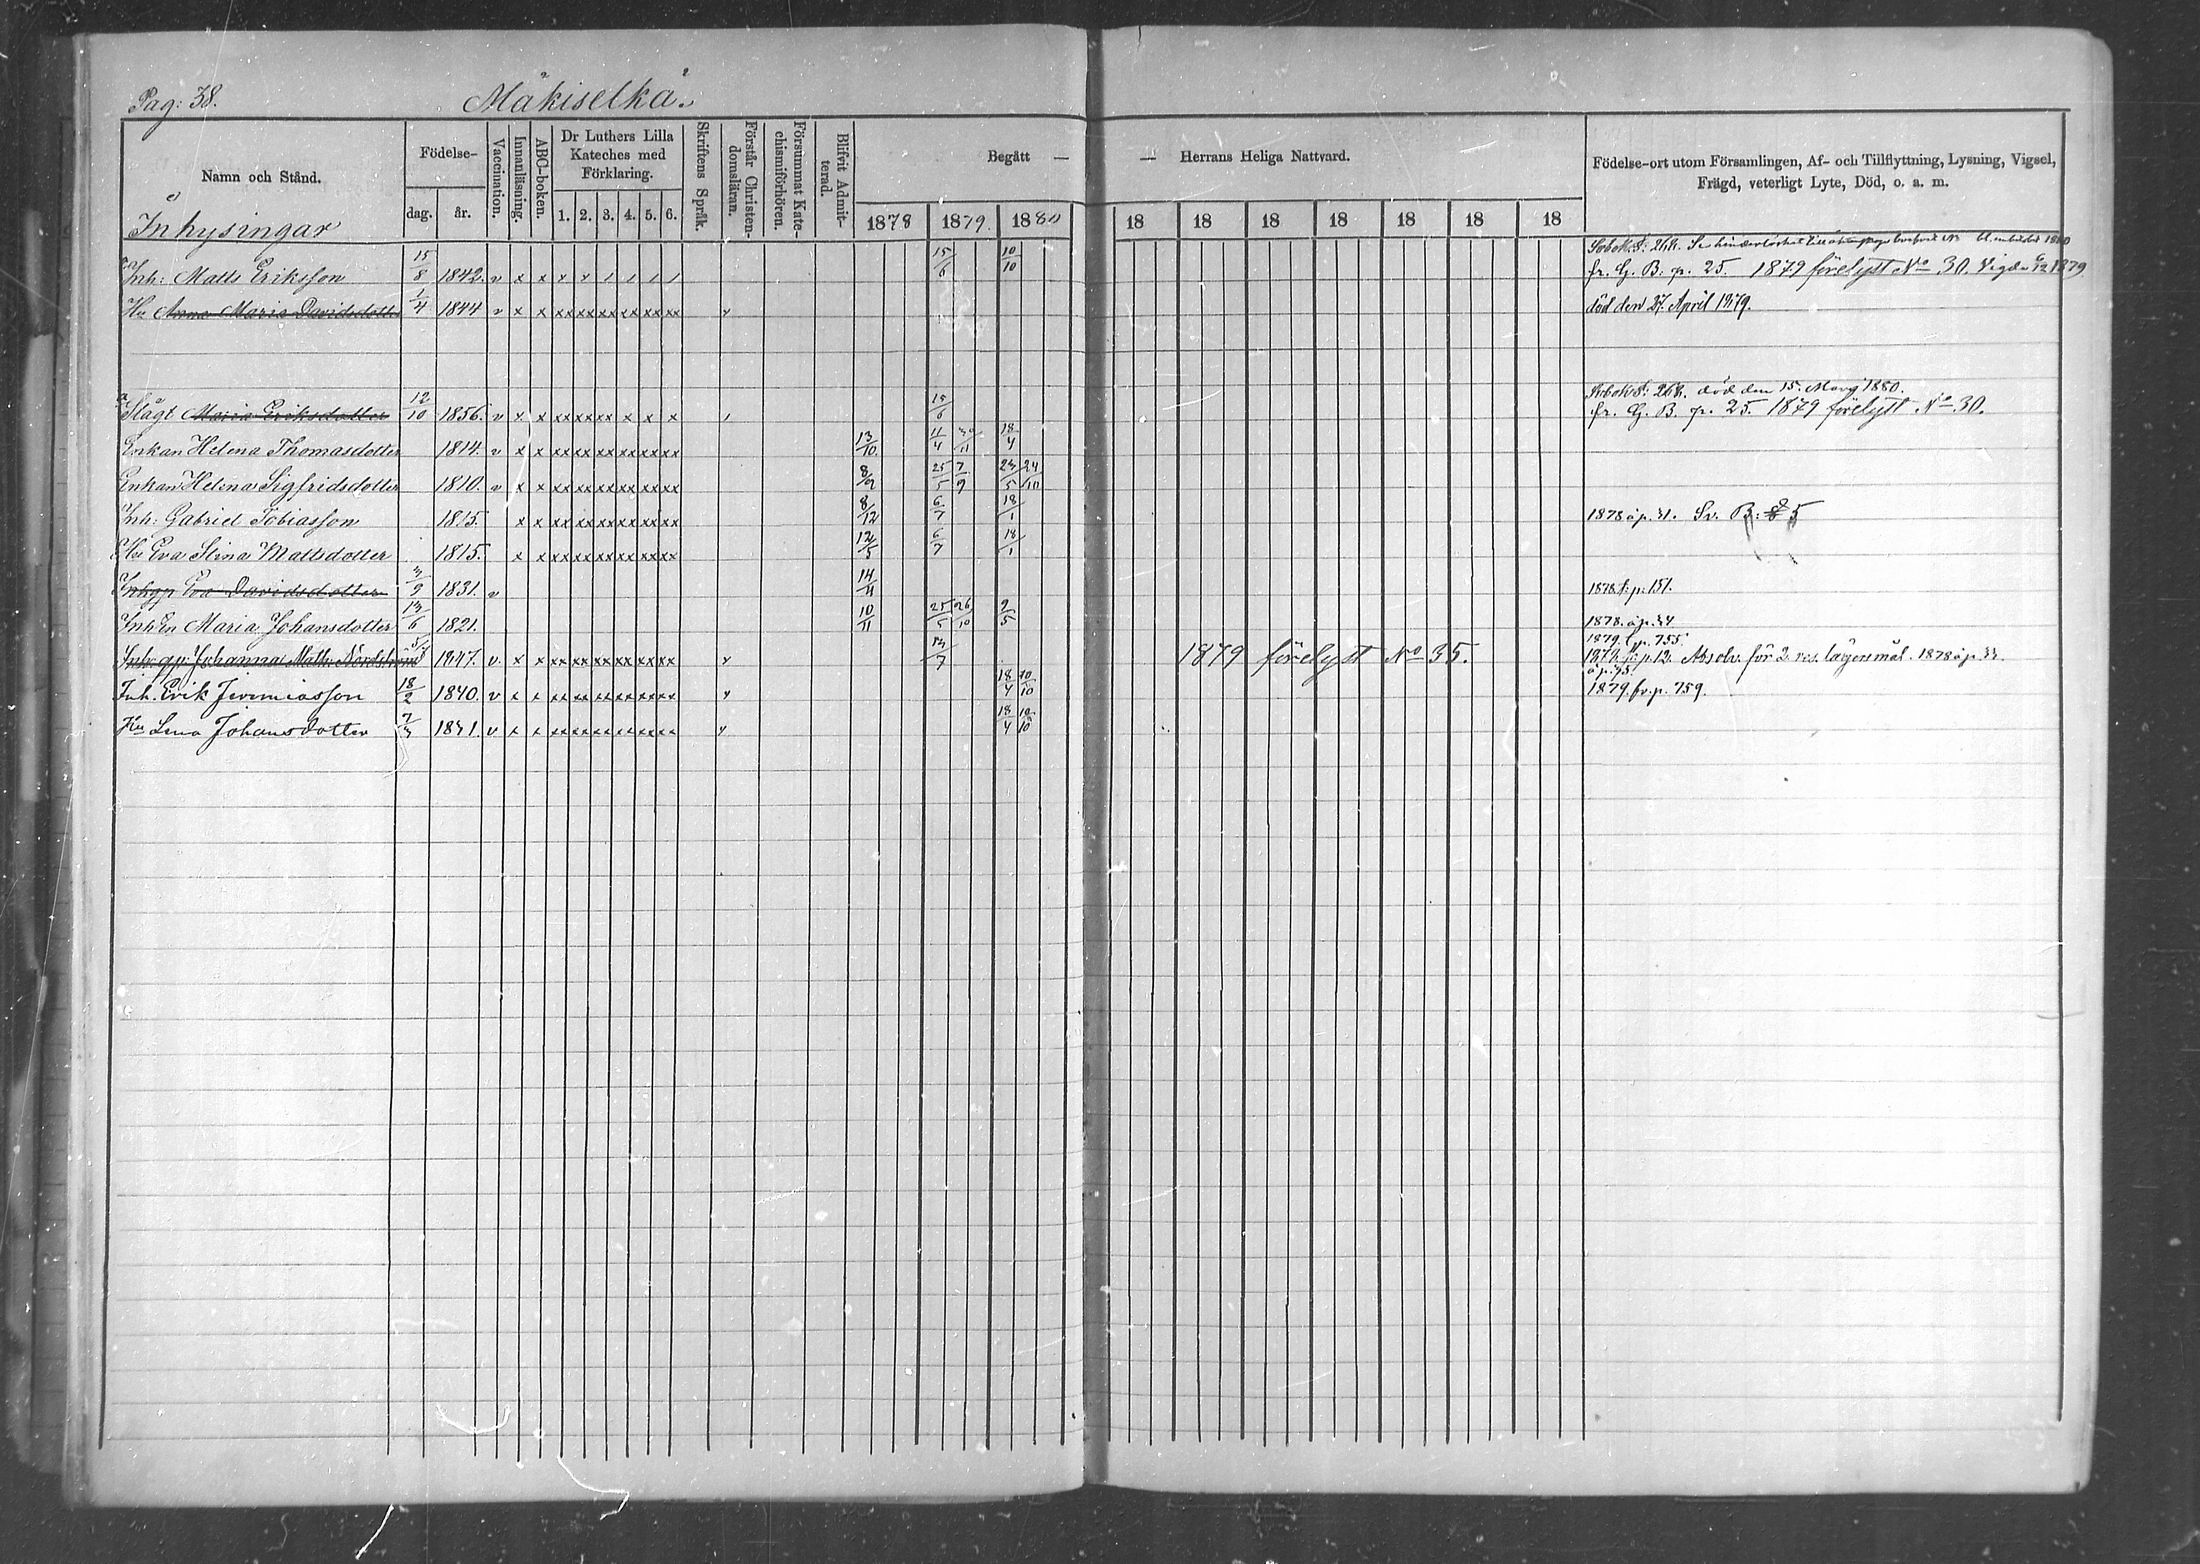 Pag: 38. Måkiselkå.
Namn och Stånd. Födelse- dag. år. Vaccination. Innanläsning. ABC-boken. Dr Luthers Lilla Kateches med Förklaring. 1. 2. 3. 4. 5. 6. Skriftens Språk. Förstår Christendomsläran. Försummat Katechismiförhören. Blifvit Admitterad. Begått — 1878 1879. 1880
— Herrans Heliga Nattvard. 18 18 18 18 18 18 18
Födelse-ort utom Församlingen, Af- och Tillflyttning, Lysning, Vigsel, Frägd, veterligt Lyte, Död, o. a. m.
Inhysingar
Inh: Matts Eriksson 15/8 1842. v x x x x / / / / 15/6 10/10 fr. G. B. p. 25. 1879 förelyst No 30. Vigd 1879
Hu Anna Maria Davidsdotter 1/4 1844 v x x xx xx xx xx xx xx v död den 27. April 1879.
död den 15. Mars 1880.
Maria Eriksdotter 12/10 1856. v x x xx xx xx x x x / 15/6 fr. G. B. p. 25. 1879 förelyst No 30.
Enkan Helena Thomasdotter 1814. v x x xx xx xx xx xx xx 13/10 11/4 30/11 18/4
Enkan Helena Sigfridsdotter 1810. v x x xx xx xx xx xx xx 8/9 25/5 7/9 23/5 24/10
Inh: Gabriel Tobiasson 1815. x x xx xx xx xx xx xx 8/12 6/7 18/1 Sv. B: 5
Hu Eva Stina Mattsdotter 1815. x x xx xx xx xx xx xx 12/5 6/7 18/1
Eva Davidsdotter 3/9 1831. v 14/4 1878 p. 151.
Maria Johansdotter 13/6 1821. 10/11 25/5 26/10 9/5
1879. p. 755.
Johanna Math: Nordström 1847. v. x x xx xx xx xx xx xx v 13/7 1879 förelyst No 35. p. 12. Absolv. för 2 res. lägersmål.
Inh. Erik Jeremiasson 18/2 1840. v x x xx xx xx xx xx xx v 18/4 10/10 1879. fr. p. 759.
Hu Lena Johansdotter 7/3 1841. v x x xx xx xx xx xx xx v 18/4 10/10